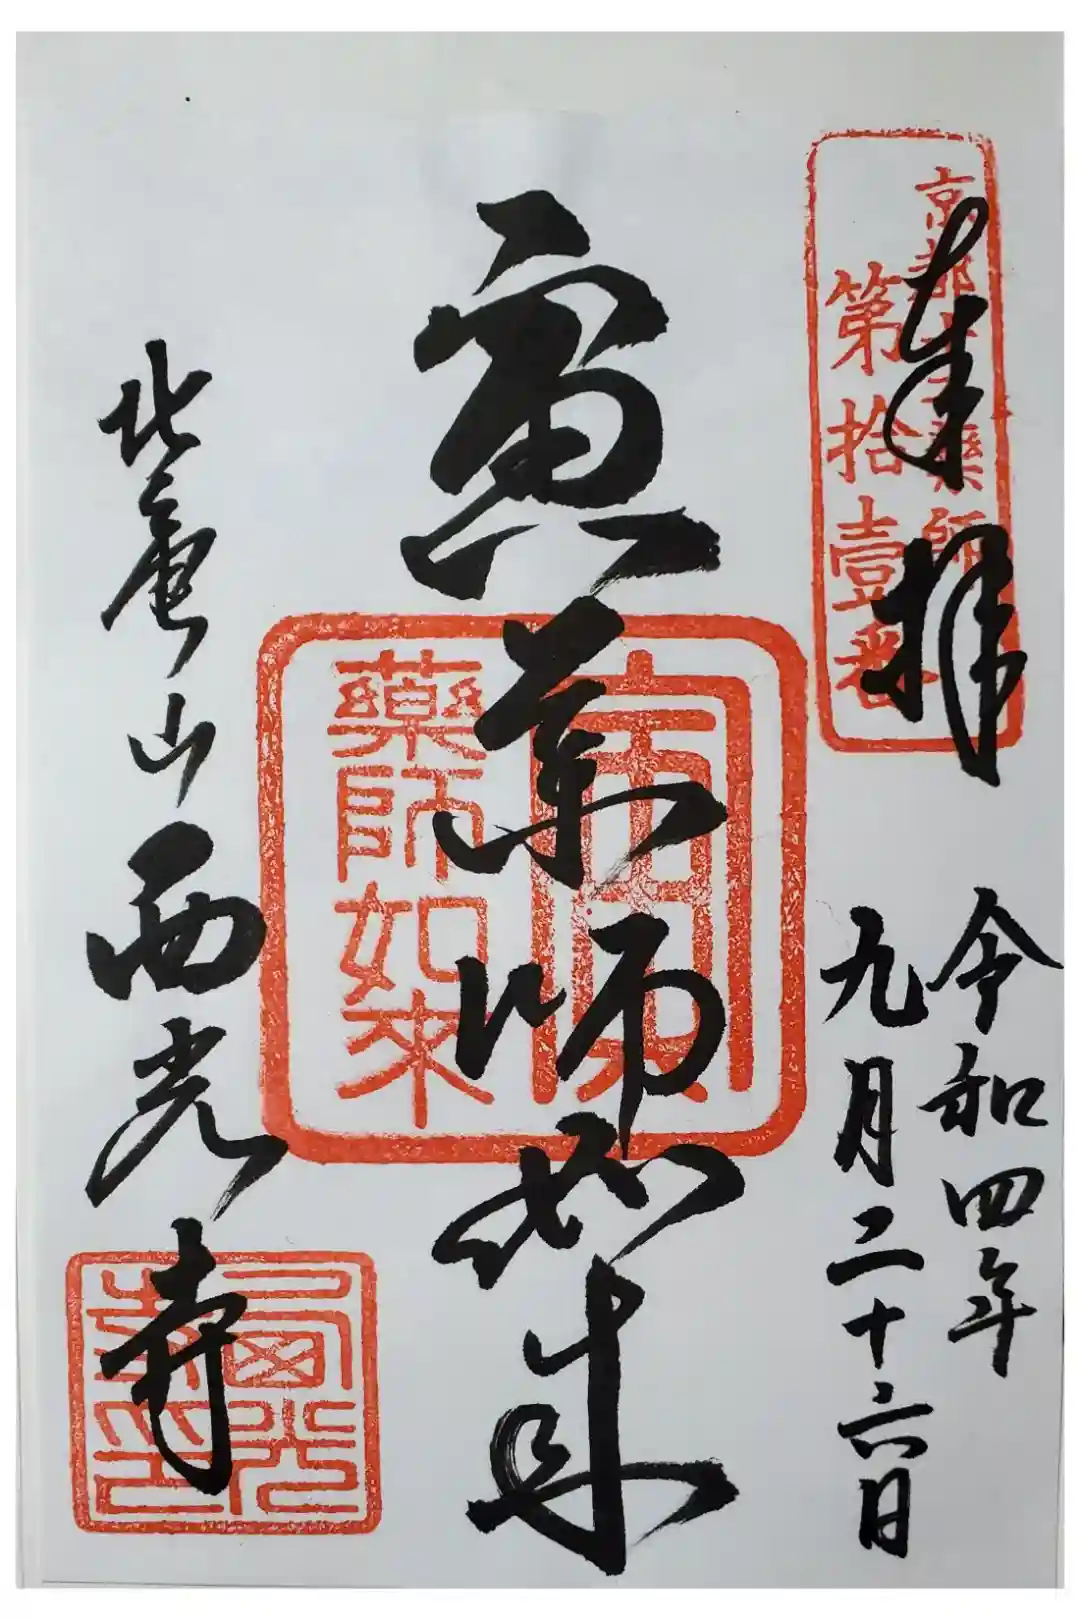 奉拝
京都十二薬師
第拾壹番
令和四年
九月二十六日
寅薬師如来
寅薬師
薬師如來
北庵山西光寺
西光
寺印